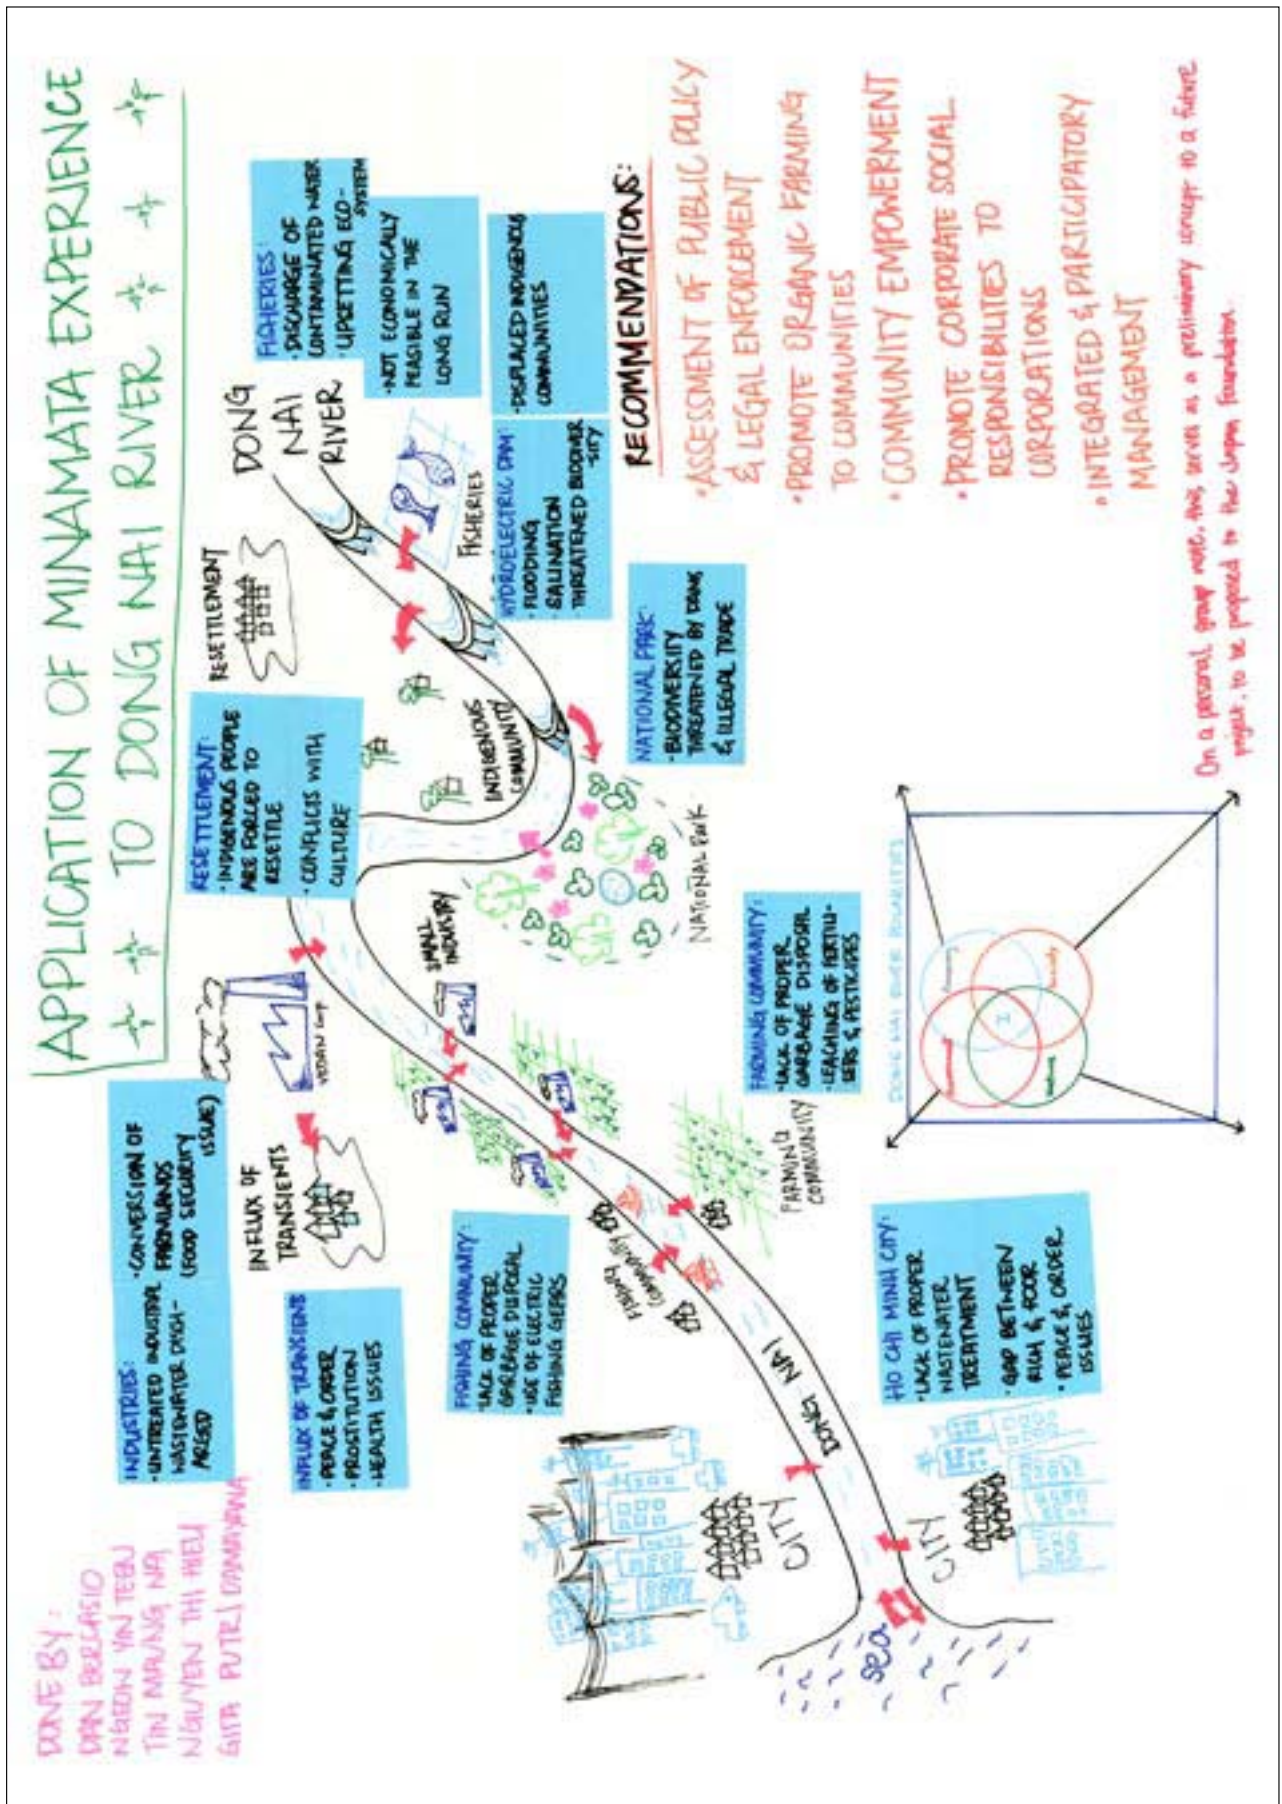 APPLICATION OF MINAMATA EXPERIENCE
TO DONG NAI RIVER
DONE BY:
DAN BERGASIO
NGEOW YIN TEEN
TIN MAUNG
NGUYEN THI HIEU
GITA PUTRI DAMAYANA
INDUSTRIES:
• UNTREATED INDUSTRIAL
WASTEWATER DISCH-
ARGED
• CONVERSION OF
FARMLANDS
(FOOD SECURITY
ISSUE)
INFLUX OF
TRANSIENTS
INFLUX OF TRANSIENTS
• PEACE & ORDER
• PROSTITUTION
• HEALTH ISSUES
VEDAN Corp
RESETTLEMENT:
• INDIGENOUS PEOPLE
ARE FORCED TO
RESETTLE
• CONFLICTS WITH
CULTURE
RESETTLEMENT
DONG
NAI
RIVER
FISHERIES:
• DISCHARGE OF
CONTAMINATED WATER
• UPSETTING ECO-
SYSTEM
• NOT ECONOMICALLY
FEASIBLE IN THE
LONG RUN
FISHERIES
HYDROELECTRIC DAM:
• FLOODING
SALINATION
THREATENED BIODIVER
-SITY
• DISPLACED INDIGENOUS
COMMUNITIES
INDIGENOUS
COMMUNITY
SMALL
INDUSTRY
NATIONAL PARK
NATIONAL PARK:
• BIODIVERSITY
THREATENED BY DAMS
& ILLEGAL TRADE
FISHING COMMUNITY:
• LACK OF PROPER
GARBAGE DISPOSAL
• USE OF ELECTRIC
FISHING GEARS
FISHING
COMMUNITY
FARMING
COMMUNITY
FARMING COMMUNITY:
• LACK OF PROPER
GARBAGE DISPOSAL
• LEACHING OF FERTILI-
SERS & PESTICIDES
CITY
DONG NAI
CITY
SEA
HO CHI MINH CITY:
• LACK OF PROPER
WASTEWATER
TREATMENT
• GAP BETWEEN
RICH & POOR
• PEACE & ORDER
ISSUES
DONG NAI RIVER
RECOMMENDATIONS:
• ASSESSMENT OF PUBLIC POLICY
& LEGAL ENFORCEMENT
• PROMOTE ORGANIC FARMING
TO COMMUNITIES
• COMMUNITY EMPOWERMENT
• PROMOTE CORPORATE SOCIAL
RESPONSIBILITIES TO
CORPORATIONS
• INTEGRATED & PARTICIPATORY
MANAGEMENT
On a personal group note, this serves as a preliminary concept to a future
project, to be proposed to the Japan Foundation.